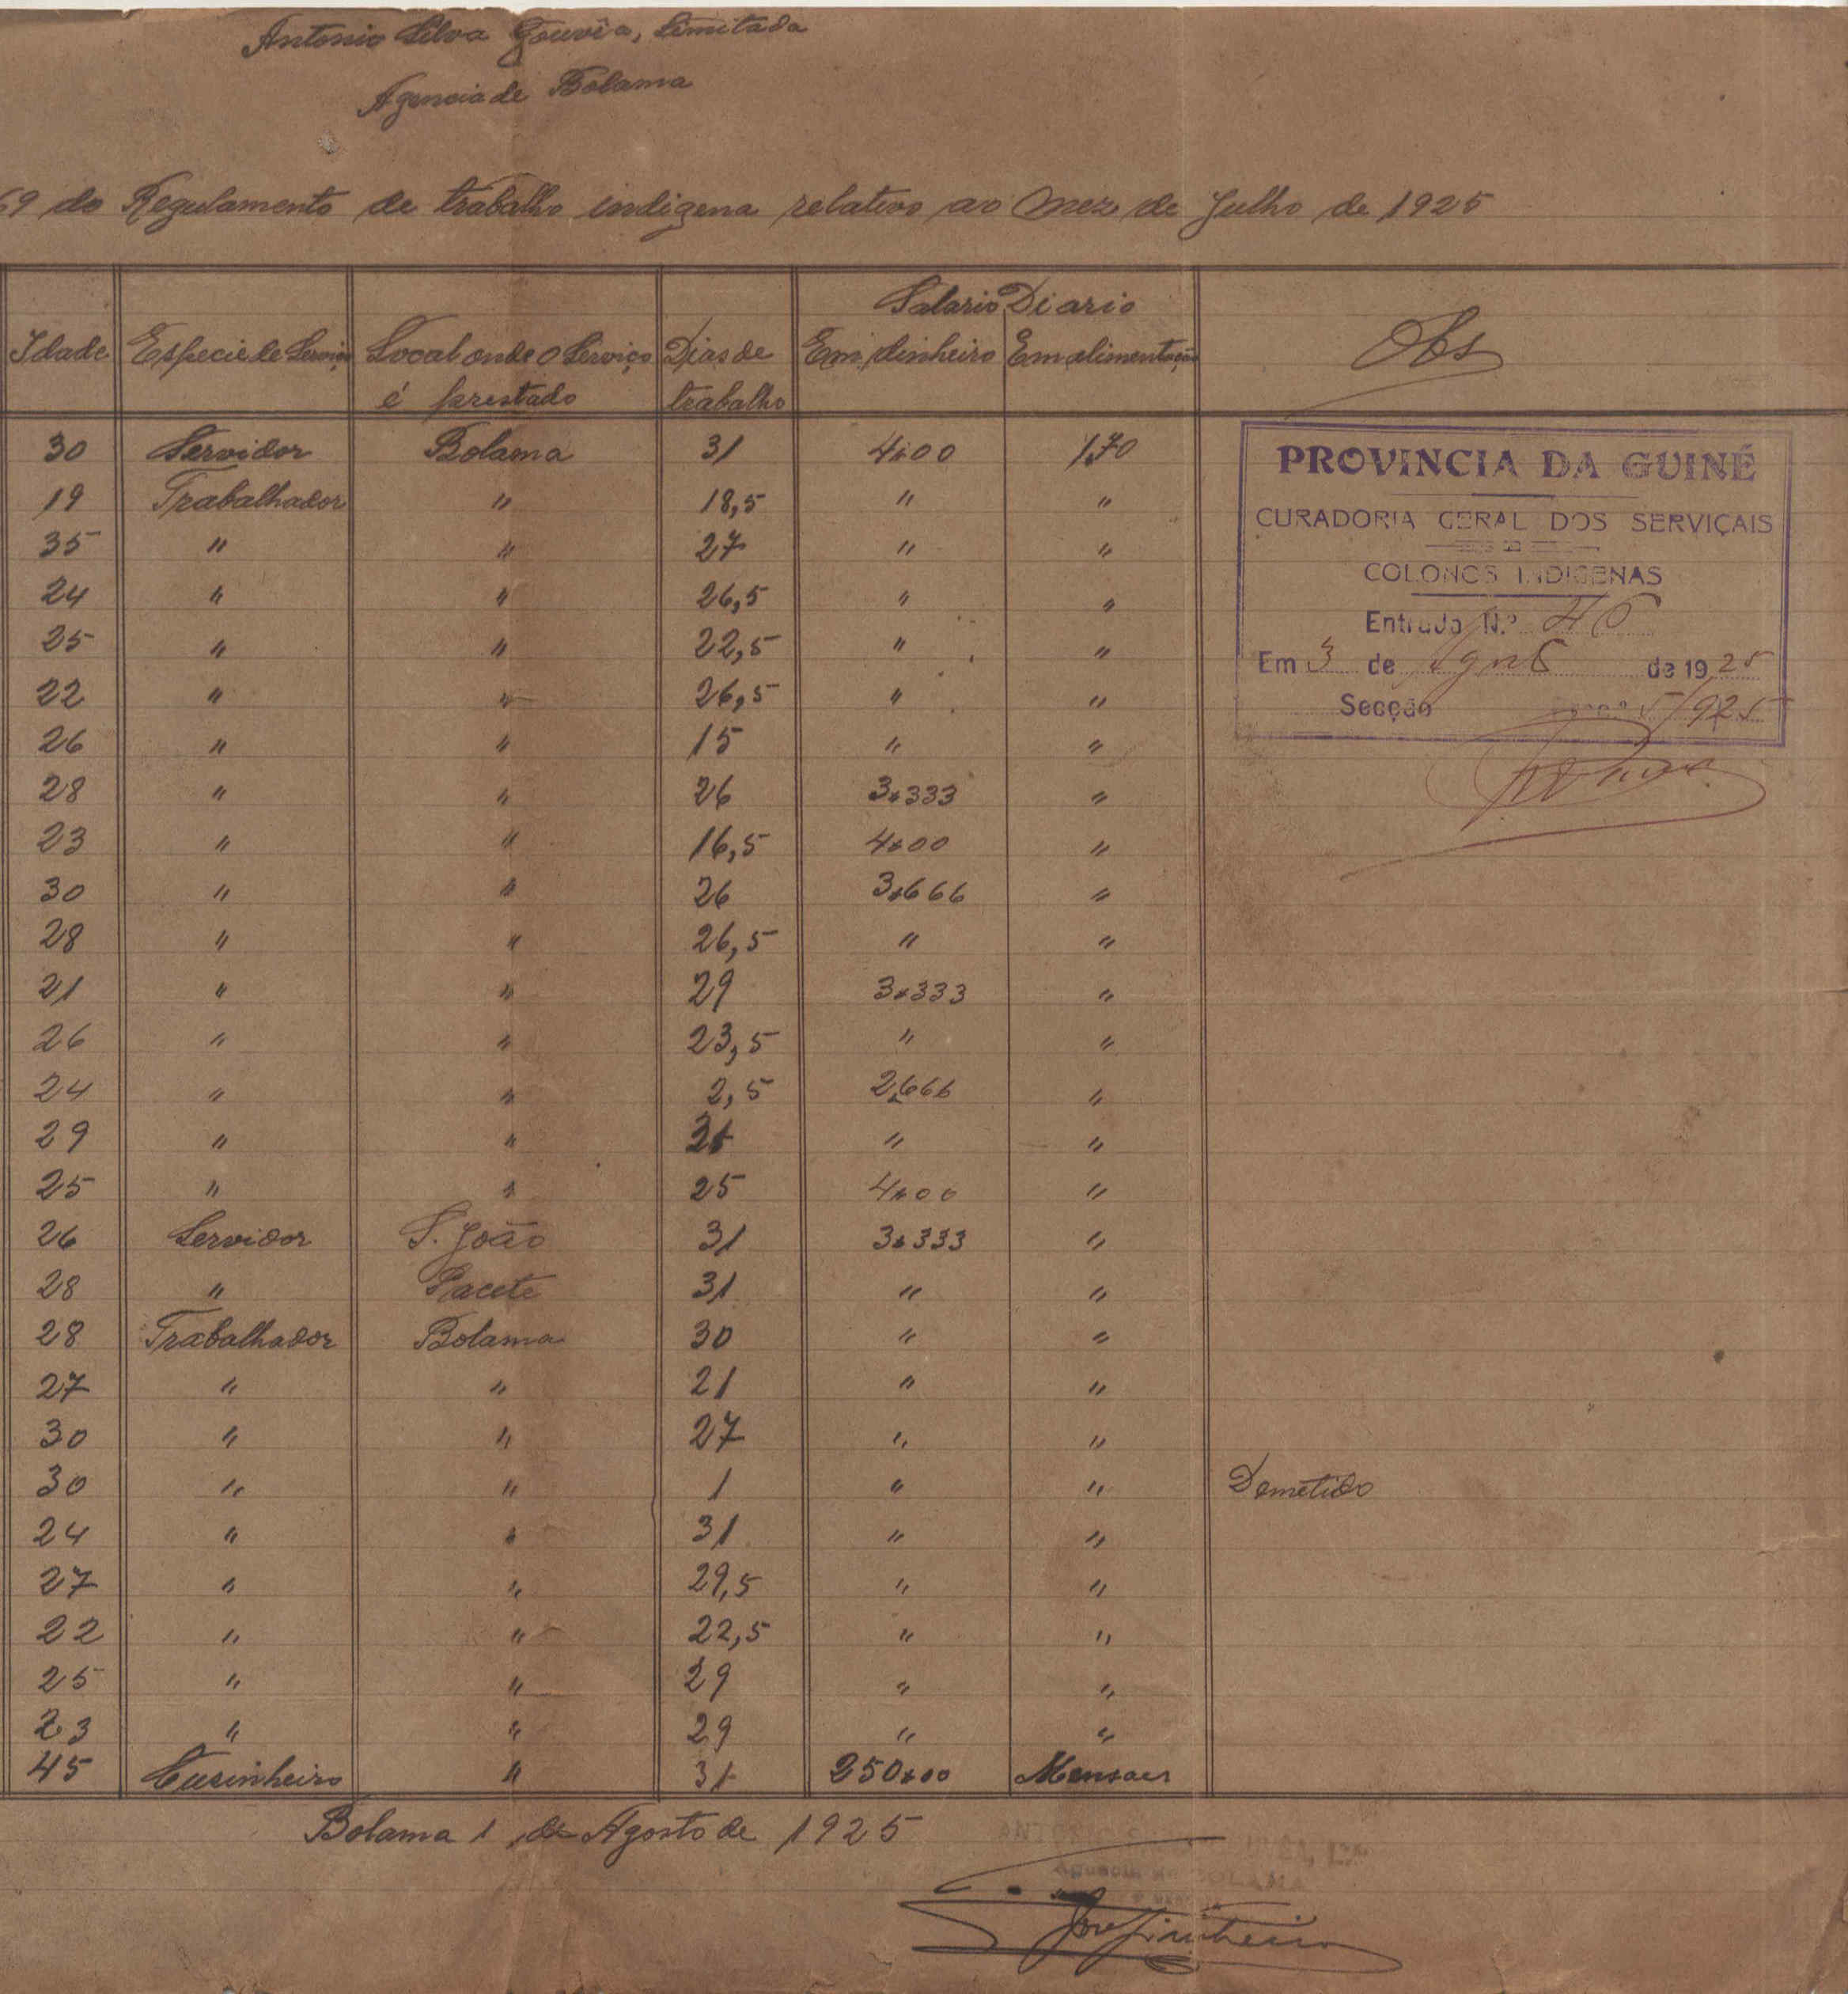 Antonio Silva Gouvêa, Limitada
Agencia de Bolama
69 do Regulamento de trabalho indigena relativo ao mez de Julho de 1925
Salario Diario
Idade Especie de Serviço Local onde o Serviço Dias de Em dinheiro Em alimentação Obs
é prestado trabalho
30 Servidor Bolama 31 4$00 1,70
19 Trabalhador " 18,5 " "
35 " " 27 " "
24 " " 26,5 " "
25 " " 22,5 " "
22 " " 26,5 " "
26 " " 15 " "
28 " " 26 3$333 "
23 " " 16,5 4$00 "
30 " " 26 3$666 "
28 " " 26,5 " "
21 " " 29 3$333 "
26 " " 23,5 " "
24 " " 2,5 2$666 "
29 " " " "
25 " " 25 4$00 "
26 Servidor S. João 31 3$333 "
28 " 31 " "
28 Trabalhador Bolama 30 " "
27 " " 21 " "
30 " " 27 " "
30 " " 1 " " Demetido
24 " " 31 " "
27 " " 29,5 " "
22 " " 22,5 " "
25 " " 29 " "
23 " " 29 " "
45 Cusinheiro " 31 250$00 Mensaes
PROVINCIA DA GUINÉ
CURADORIA GERAL DOS SERVIÇAIS
E
COLONOS INDIGENAS
Entrada N.º 46
Em 3 de Agosto de 1925
Secção 5/925
Bolama 1 de Agosto de 1925
Agencia de BOLAMA
José Pinheiro